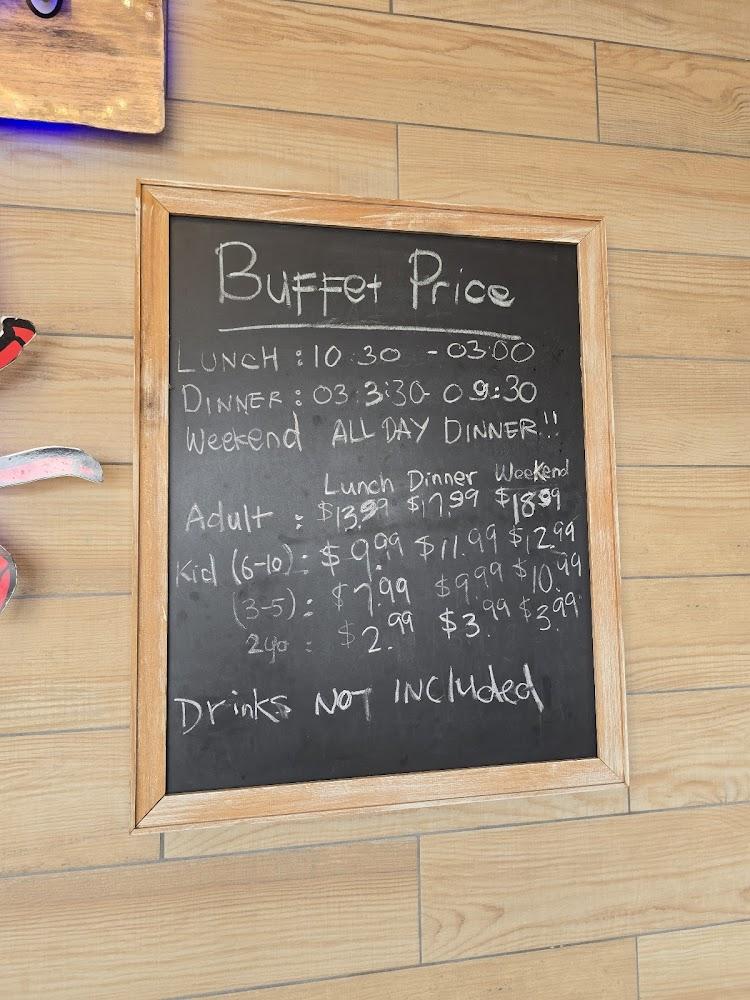 Buffet Price
LUNCH : 10:30 - 03:00
DINNER : 03 3:30- 09:30
Weekend ALL DAY DINNER!!
Lunch Dinner Weekend
Adult : $13.99 $17.99 $18.99
Kid (6-10): $9.99 $11.99 $12.99
(3-5): $7.99 $9.99 $10.99
2yo : $2.99 $3.99 $3.99
Drinks NOT INCluded